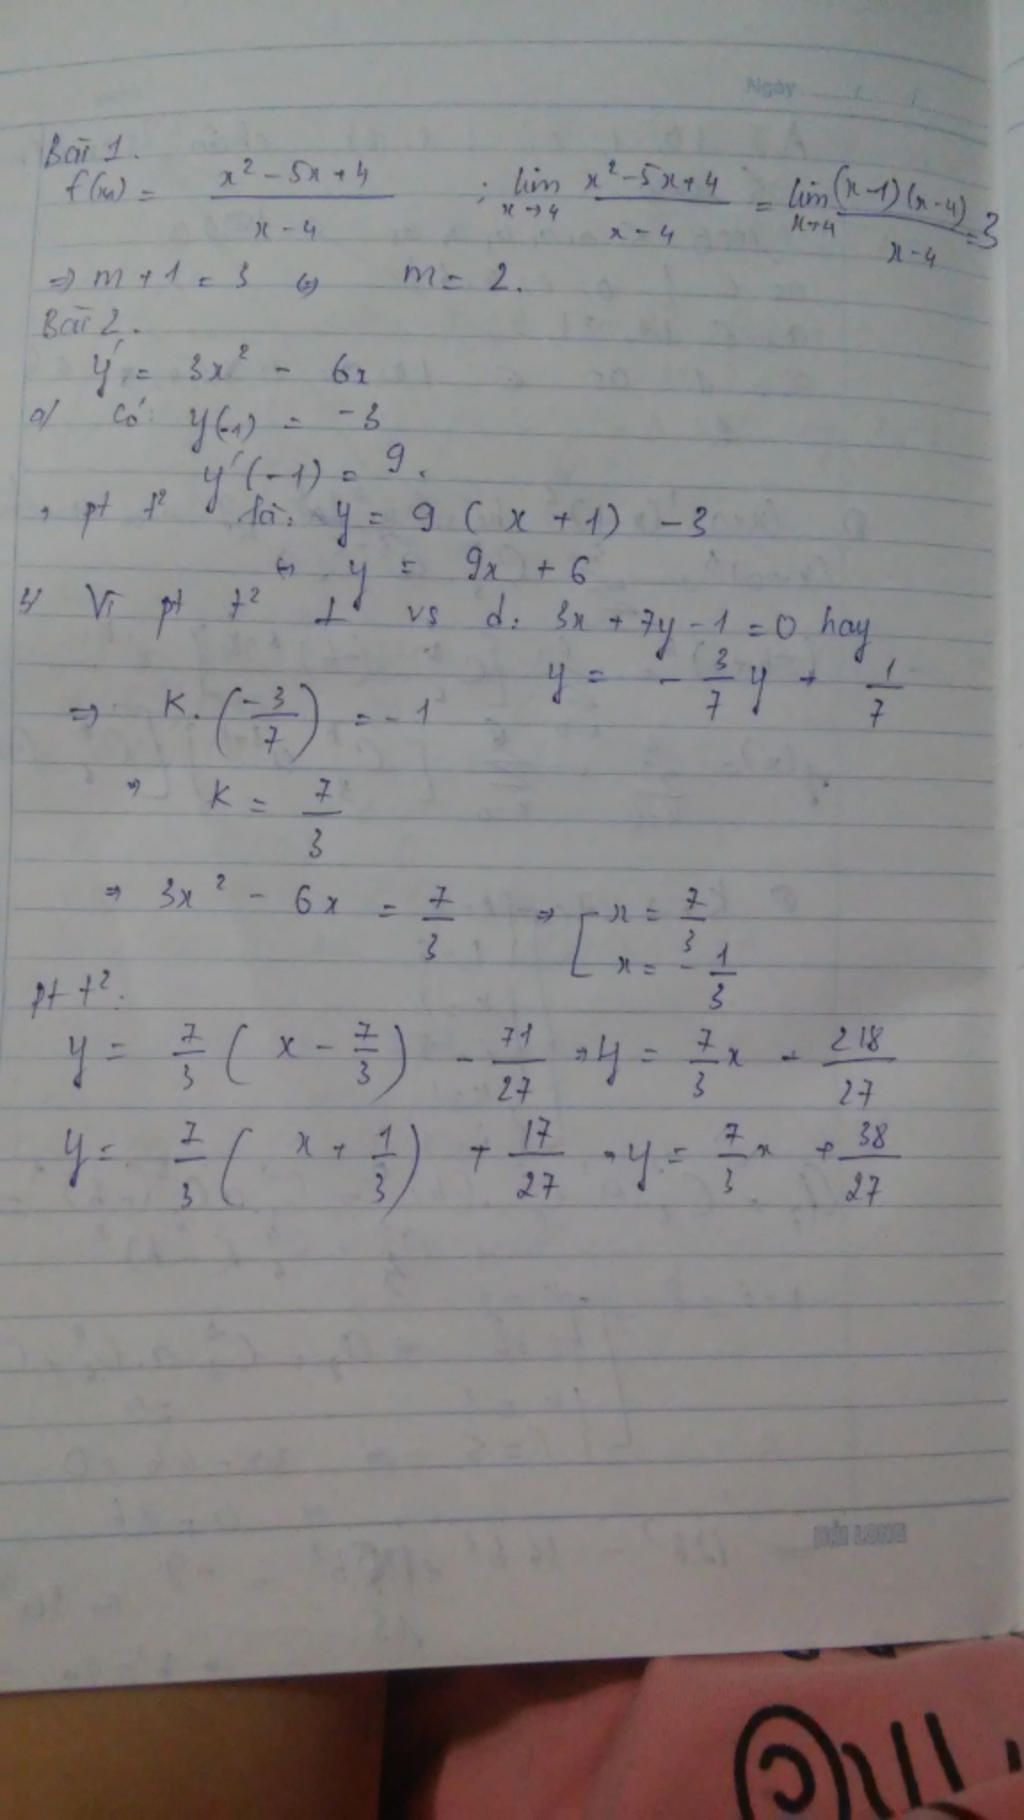 Ngày / /
Bài 1.
f(x) = \frac{x^2 - 5x + 4}{x - 4} ; \lim_{x \to 4} \frac{x^2 - 5x + 4}{x - 4} = \lim_{x \to 4} \frac{(x-1)(x-4)}{x-4} = 3
⇒ m + 1 = 3 ⇔ m = 2.
Bài 2.
y' = 3x^2 - 6x
a/ Có: y(-1) = -3
y'(-1) = 9.
, pt t^2 là: y = 9(x + 1) - 3
⇔ y = 9x + 6
b/ Vì pt t^2 ⊥ vs d: 3x + 7y - 1 = 0 hay
y = -\frac{3}{7}y + \frac{1}{7}
⇒ K.(\frac{-3}{7}) = -1
⇒ K = \frac{7}{3}
⇒ 3x^2 - 6x = \frac{7}{3} ⇒ [ x = \frac{7}{3}
x = -\frac{1}{3}
pt t^2:
y = \frac{7}{3}(x - \frac{7}{3}) - \frac{71}{27} ⇒ y = \frac{7}{3}x - \frac{218}{27}
y = \frac{7}{3}(x + \frac{1}{3}) + \frac{17}{27} ⇒ y = \frac{7}{3}x + \frac{38}{27}
HẢI LONG